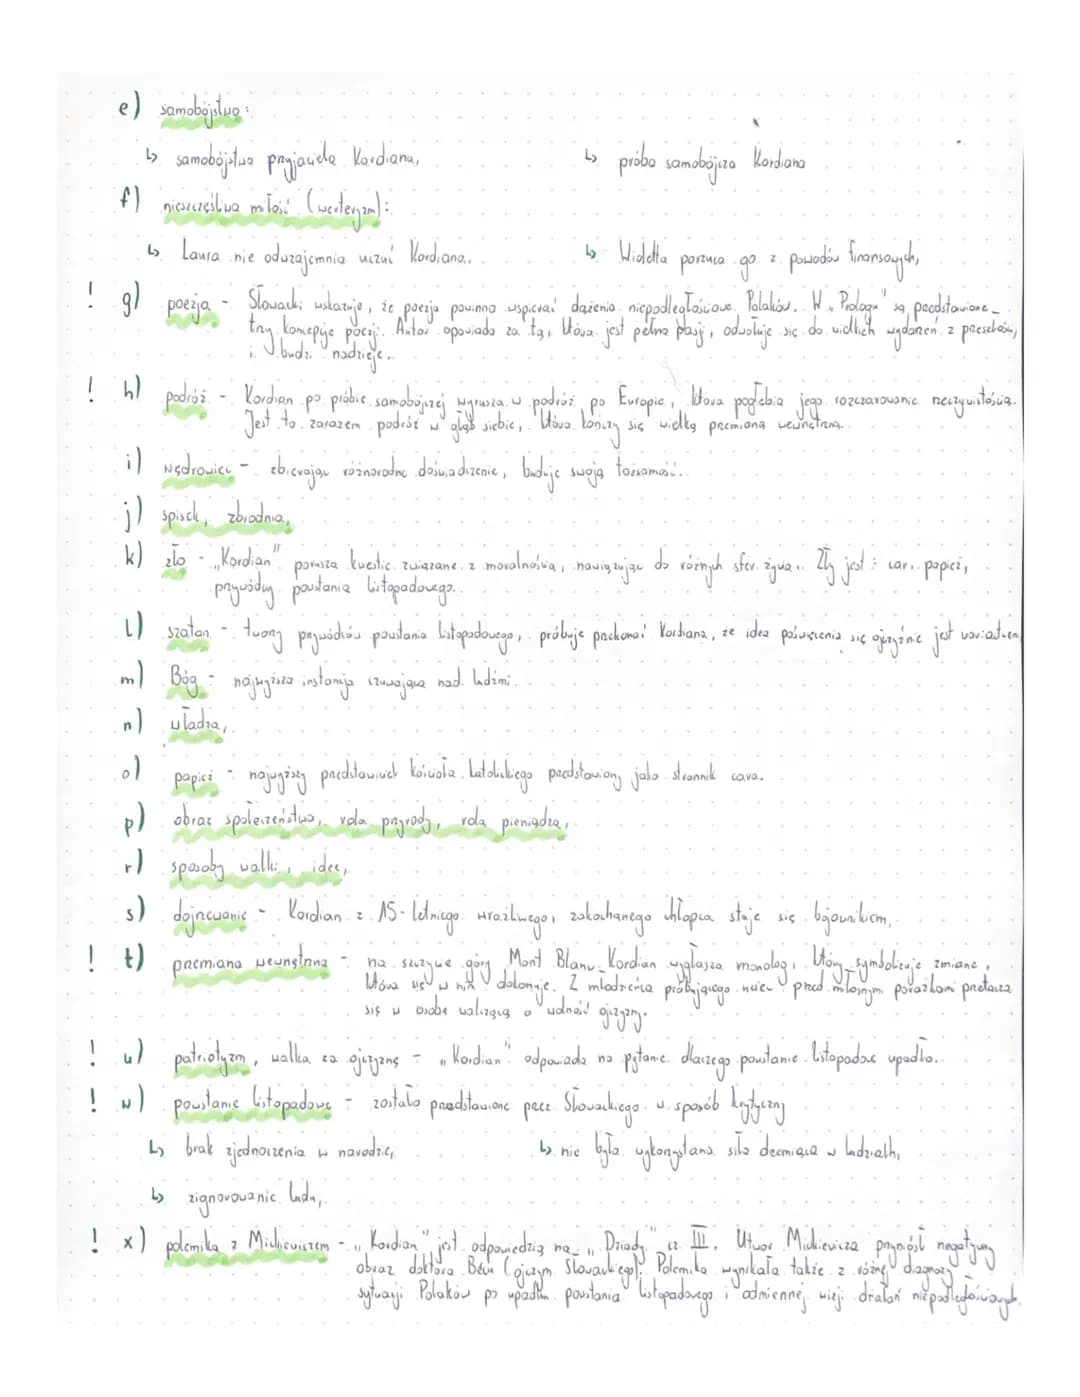 e) samobójstwo:
↳ samobójstwo przyjaciela Kordiana, ↳ próba samobójcza Kordiana
f) nieszczęśliwa miłość (werteryzm):
↳ Laura nie odwzajemnia uczuć Kordiana, ↳ Wioletta porzuca go z powodów finansowych,
! g) poezja - Słowacki wskazuje, że poezja powinna wspierać dążenia niepodległościowe Polaków. W „Prologu" są przedstawione
trzy koncepcje poezji. Autor opowiada za tą, która jest pełna pasji, odwołuje się do wielkich wydarzeń z przeszłości,
i budzi nadzieję.
! h) podróż - Kordian po próbie samobójczej wyrusza w podróż po Europie, która pogłębia jego rozczarowanie rzeczywistością.
Jest to zarazem podróż w głąb siebie, która kończy się wielką przemianą wewnętrzną.
i) wędrowiec - zbierając różnorodne doświadczenie, buduje swoją tożsamość.
j) spisek, zbrodnia,
k) zło - „Kordian" porusza kwestie związane z moralnością, nawiązując do różnych sfer życia. Zły jest: car, papież,
przywódcy powstania listopadowego.
l) szatan - tworzy przywódców powstania listopadowego, próbuje przekonać Kordiana, że idea poświęcenia się ojczyźnie jest wariactwem
m) Bóg - najwyższa instancja czuwająca nad ludźmi.
n) władza,
o) papież - najwyższy przedstawiciel kościoła katolickiego przedstawiony jako stronnik cara.
p) obraz społeczeństwa, rola przyrody, rola pieniądza,
r) sposoby walki, idee,
s) dojrzewanie - Kordian z 15-letniego wrażliwego, zakochanego chłopca staje się bojownikiem,
! t) przemiana wewnętrzna - na szczycie góry Mont Blanc Kordian wygłasza monolog, który symbolizuje zmianę,
która się w nim dokonuje. Z młodzieńca próbującego uciec przed miłosnymi porażkami przetacza
się w osobę walczącą o wolność ojczyzny.
! u) patriotyzm, walka za ojczyznę - „Kordian" odpowiada na pytanie dlaczego powstanie listopadowe upadło.
! w) powstanie listopadowe - zostało przedstawione przez Słowackiego w sposób krytyczny
↳ brak zjednoczenia w narodzie, ↳ nie była wykorzystana siła drzemiąca w ludziach,
↳ zignorowanie ludu,
! x) polemika z Mickiewiczem - „Kordian" jest odpowiedzią na „Dziady" cz III. Utwór Mickiewicza przyniósł negatywny
obraz doktora Bécu (ojczym Słowackiego). Polemika wynikała także z różnej diagnozy
sytuacji Polaków po upadku powstania listopadowego i odmiennej wizji działań niepodległościowych.